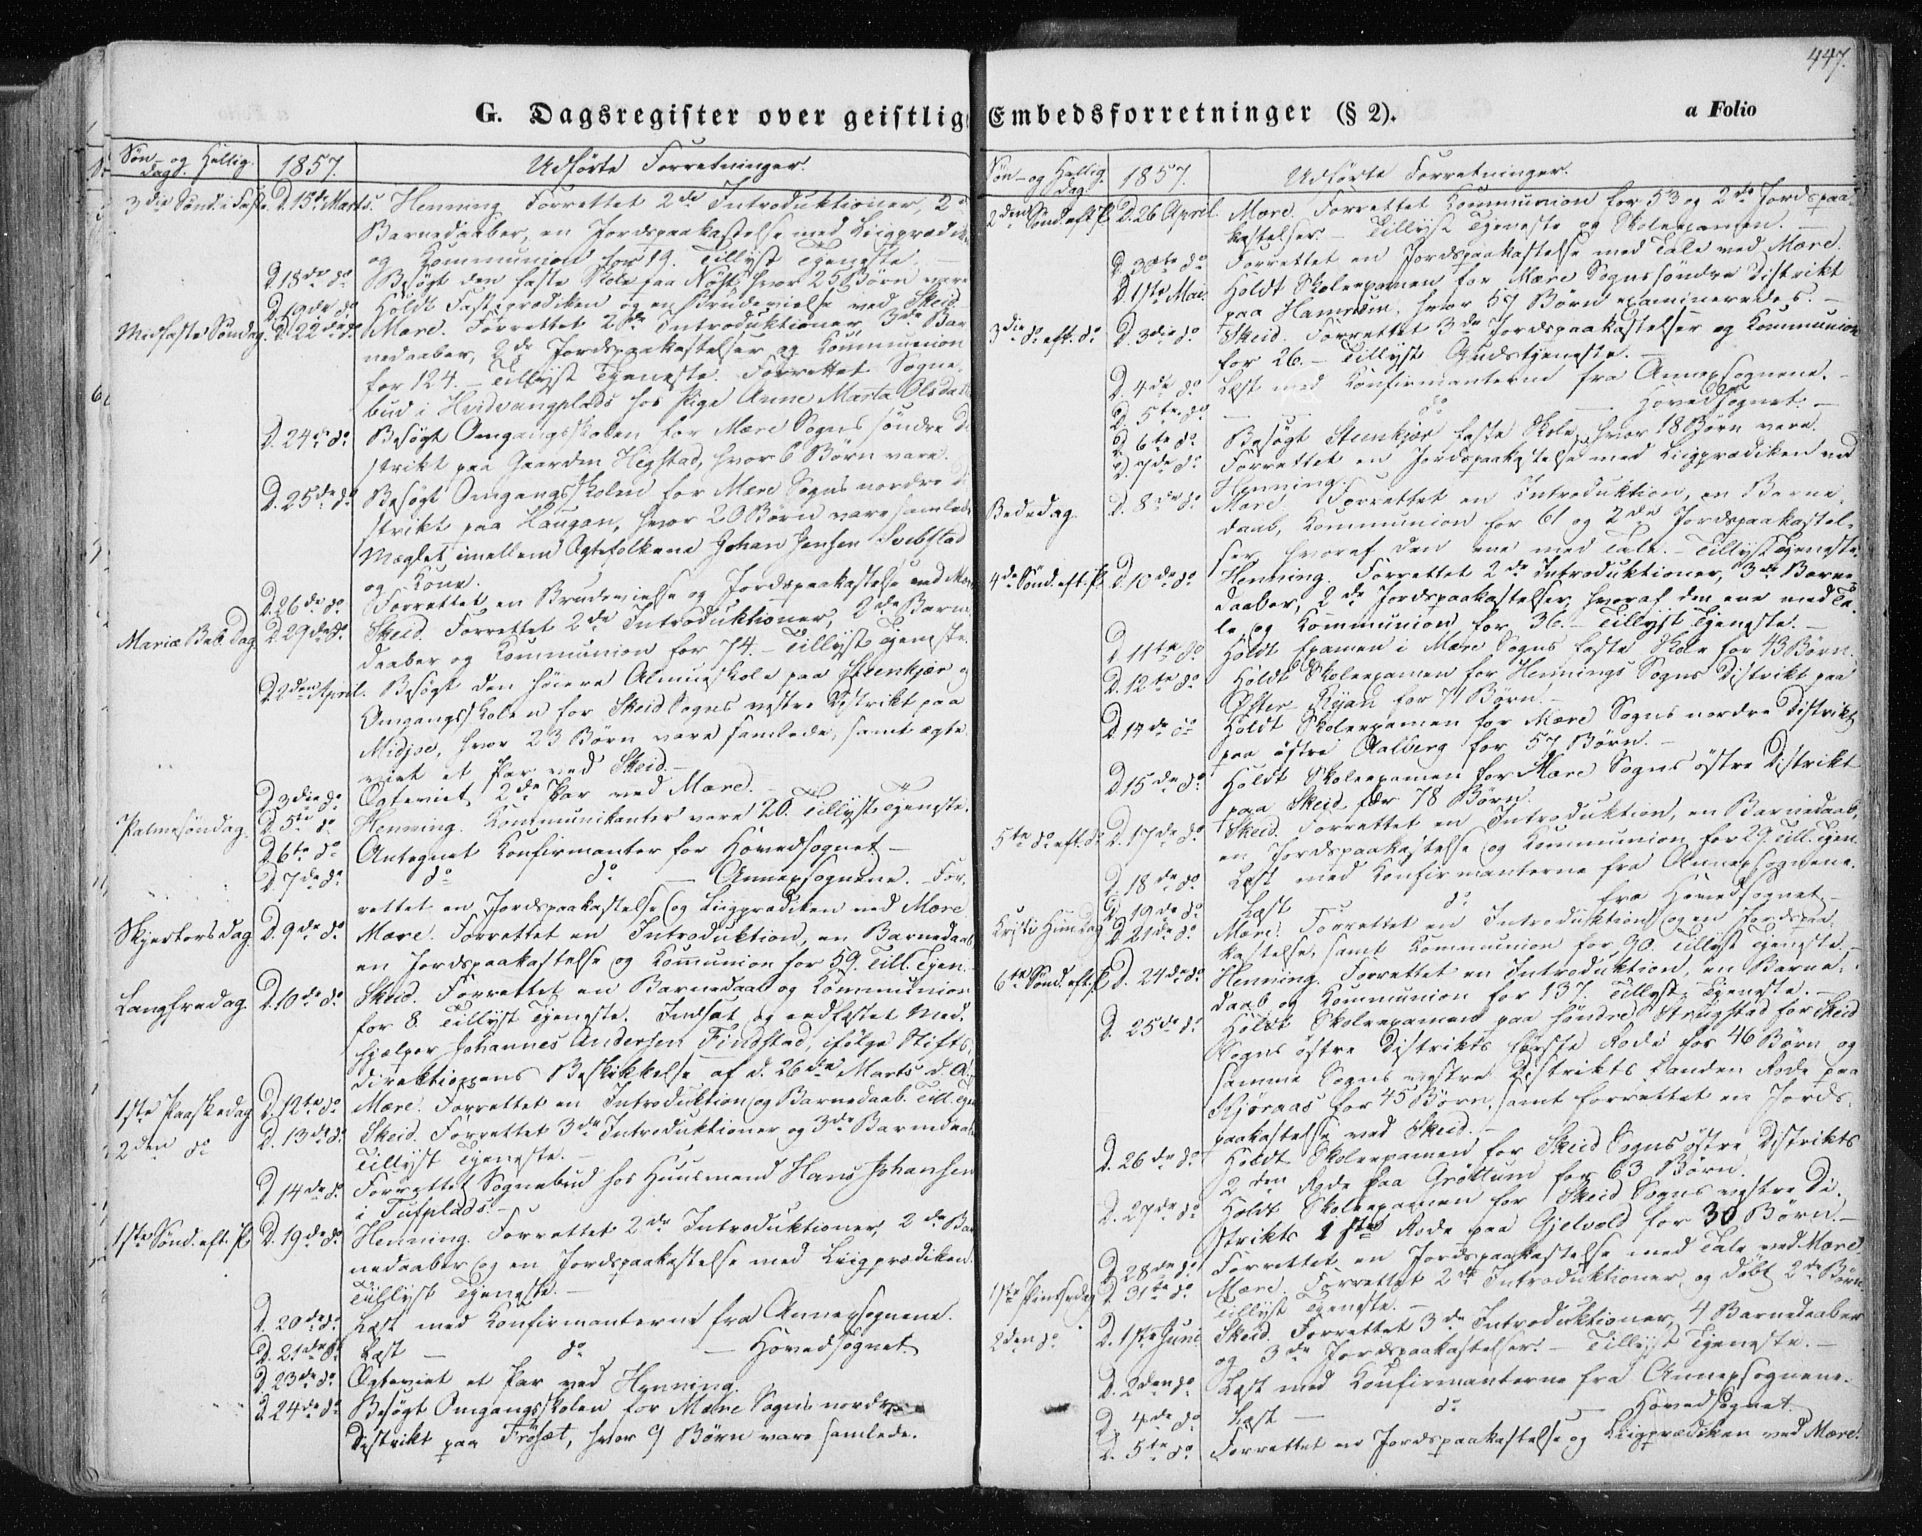 447.
G. Dagsregister over geistlige Embedsforretninger (§ 2).
a Folio
Søn- og Hellig-
dag.
1857.
Udførte Forretninger.
3die Sønd. i Faste. D. 15de Marts. Henning. Forrettet 2de Introduktioner, 2de
Barnedaaber, en Jordspaakastelse med Liigprædik
og Kommunion for 19. Tillyst Tjeneste. –
D. 18de do Besøgt den faste Skole paa Nøst, hvor 25 Børn vare
D. 19de do Holdt Fasteprædiken og en Brudevielse ved Skeid.
Midfaste Søndag. D. 22de do Mære. Forrettet 2de Introduktioner, 3de Bar
nedaaber, 2de Jordspaakastelser og Kommunion
for 124. – Tillyst Tjeneste. Forrettet Sogne-
bud i Hvidvangplads hos Pige Anne Marta Olsdatt
D. 24de do Besøgt Omgangsskolen for Mære Sogns søndre Di
strikt paa Gaarden Hegstad, hvor 6 Børn vare.
D. 25de do Besøgt Omgangsskolen for Mære Sogns nordre Di
strikt paa Haugan, hvor 20 Børn vare samlede
Mæglet imellem Ægtefolkene Johan Jensen Svebstad
og Kone.
D. 26de do Forrettet en Brudevielse og Jordspaakastelse ved Mære
Mariæ Beb. Dag. D. 29de do Skeid. Forrettet 2de Introduktioner, 2de Barne
daaber og Kommunion for 74. – Tillyst Tjeneste.
D. 2den April. Besøgt den høiere Almueskole paa Steenkjær og
Omgangsskolen for Skeid Sogns vestre Distrikt paa
Midjoe, hvor 23 Børn vare samlede, samt ægte-
viet et Par ved Skeid. –
D. 3die do Ægteviet 2de Par ved Mære. –
Palmesøndag. D. 5te do Henning. Kommunikanter vare 20. Tillyst Tjeneste.
D. 6te do Antegnet Konfirmanter for Hovedsognet –
D. 7de do do do – Annexsognene. For-
rettet en Jordspaakastelse og Liigprædiken ved Mære
Skjertorsdag. D. 9de do Mære. Forrettet en Introduktion, en Barnedaab
en Jordspaakastelse og Kommunion for 59. Till. Tjen.
Langfredag. D. 10de do Skeid. Forrettet en Barnedaab og Kommunion
for 8. Tillyst Tjeneste. Indsat og edfæstet Med-
hjælper Johannes Andersen Findstad, ifølge Stifts-
direktionens Beskikkelse af d. 26de Marts d. A.
1ste Paaskedag D. 12te do Mære. Forrettet en Introduktion og Barnedaab. Till. Tjen
2den do D. 13de do Skeid. Forrettet 3de Introduktioner og 3de Barnedaab
Tillyst Tjeneste. –
D. 14de do Forrettet Sognebud hos Huusmand Hans Johansen
i Tufplads. –
1ste Sønd. eft. P. D. 19de do Henning. Forrettet 2de Introduktioner, 2de Bar
nedaaber og en Jordspaakastelse med Liigprædiken.
Tillyst Tjeneste. –
D. 20de do Læst med Konfirmanterne fra Annexsognene.
D. 21de do Læst – do – Hovedsognet
D. 23de do Ægteviet et Par ved Henning.
D. 24de do Besøgt Omgangsskolen for Mære Sogns nordre
Distrikt paa Frøset, hvor 9 Børn vare samlede.
Søn- og Hellig-
dag
1857.
Udførte Forretninger.
2den Sønd. eft. P. D. 26 April. Mære. Forrettet Kommunion for 53 og 2de Jordspaa-
kastelser. – Tillyst Tjeneste og Skoleexamen. –
D. 30te do Forrettet en Jordspaakastelse med Tale ved Mære.
D. 1ste Mai. Holdt Skoleexamen for Mære Sogns søndre Distrikt
paa Hamrem, hvor 57 Børn examineredes. –
3die do eft. do D. 3die do Skeid. Forrettet 3de Jordspaakastelser og Kommunion
for 26. – Tillyst Gudstjeneste. –
D. 4de do Læst med Konfirmanterne fra Annexsognene. –
D. 5te do – do – Hovedsognet. –
D. 6te do Besøgt Steenkjær faste Skole, hvor 18 Børn vare.
D. 7de do Forrettet en Jordspaakastelse med Liigprædiken ved
Henning.
Bededag. D. 8de do Mære. Forrettet en Introduktion, en Barne-
daab, Kommunion for 61 og 2de Jordspaakastel-
ser hvoraf den ene med Tale. – Tillyst Tjeneste.
4de Sønd. eft. P. D. 10de do Henning. Forrettet 2de Introduktioner, 3de Barne-
daaber, 2de Jordspaakastelser hvoraf den ene med Ta-
le og Kommunion for 36. – Tillyst Tjeneste. –
D. 11te do Holdt Examen i Mære Sogns faste Skole for 43 Børn.
D. 12te do Holdt Skoleexamen for Hennings Sogns Distrikt paa
Øster Ryan for 71 Børn. –
D. 14de do Holdt Skoleexamen for Mære Sogns nordre Distrikt
paa østre Aalberg for 57 Børn. –
D. 15de do Holdt Skoleexamen for Mære Sogns østre Distrikt
paa Skeid for 78 Børn.
5te do eft. do D. 17de do Skeid. Forrettet en Introduktion, en Barnedaab,
en Jordspaakastelse og Kommunion for 29. Till. Tjen.
D. 18de do Læst med Konfirmanterne fra Annexsognene.
D. 19de do Læst – do fra Hovedsognet –
Kristi Him. Dag D. 21de do Mære. Forrettet en Introduktion og en Jordspaa-
kastelse, samt Kommunion for 90. Tillyst Tjeneste. –
6te Sønd. eft. P. D. 24de do Henning. Forrettet en Introduktion, en Barne-
daab og Kommunion for 137. Tillyst Tjeneste. –
D. 25de do Holdt Skoleexamen paa søndre Strugstad for Skeid
Sogns østre Distrikts første Rode for 46 Børn og
samme Sogns vestre Distrikts anden Rode paa
Kjøraas for 45 Børn, samt forrettet en Jords-
paakastelse ved Skeid. –
D. 26de do Holdt Skoleexamen for Skeid Sogns østre Distrikts
2den Rode paa Grøttum for 63 Børn.
D. 27de do Holdt Skoleexamen for Skeid Sogns vestre Di-
strikts 1ste Rode paa Gjelvold for 30 Børn. –
D. 28de do Forrettet en Jordspaakastelse med Tale ved Mære.
1ste Pintsedag D. 31te do Mære. Forrettet 2de Introduktioner og døbt 2de Børn.
Tillyst Tjeneste. –
2den do D. 1ste Juni Skeid. Forrettet 3de Introduktioner, 4 Barnedaaber
og 3de Jordspaakastelser. – Tillyst Tjeneste. –
D. 2den do Læst med Konfirmanterne fra Annexsognene.
D. 4de do Læst – do – Hovedsognet
D. 5te do Forrettet en Jordspaakastelse og Liigprædiken ved Mære.